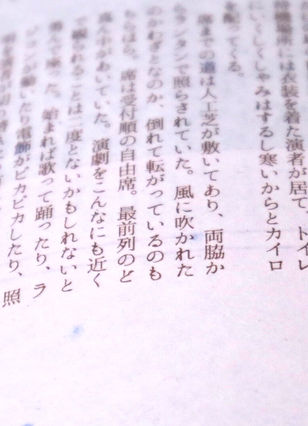 は衣装を着た演者が居て、トイレ
にいくしくしゃみはするし寒いからとカイロ
を配ってくる。
席までの道は人工芝が敷いてあり、両脇か
らランタンで照らされていた。風に吹かれた
のかわざとなのか、倒れて転がっているのも
ちらほら。席は受付順の自由席。最前列のど
真ん中があいていた。演劇をこんなにも近く
で観られることは二度とないかもしれないと
座った。始まれば歌って踊ったり、ラ
動いたり電飾がピカピカしたり、照